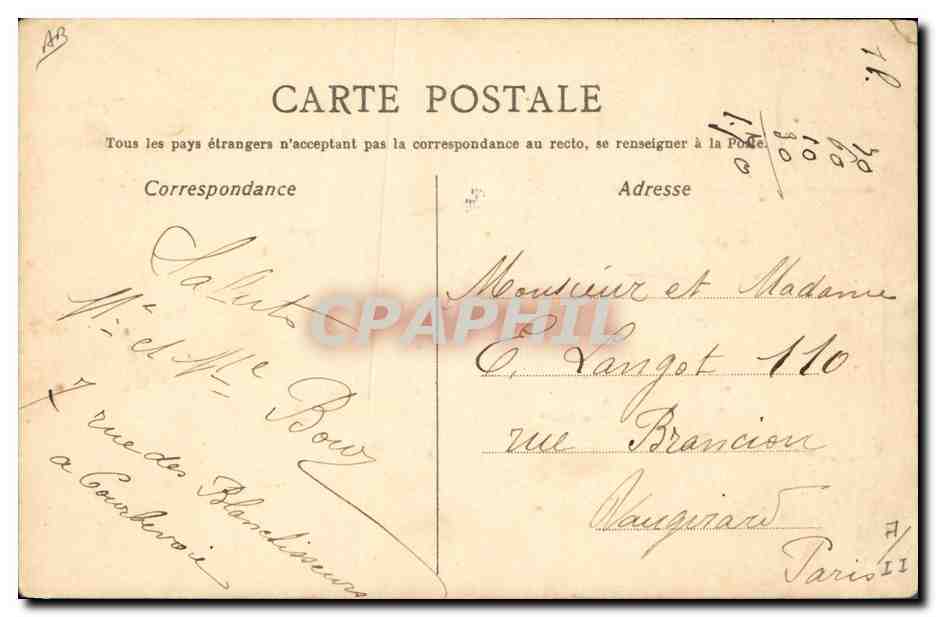 AB
CARTE POSTALE
Tous les pays étrangers n'acceptant pas la correspondance au recto, se renseigner à la Poste.
Correspondance
Saluts
Mr et Me Boury
7 rue des Blanchisseurs
a Courbevoie
Adresse
Monsieur et Madame
E. Langot 110
rue Brancion
Vaugirard
Paris
7/II
30
60
10
30
CPAPHIL